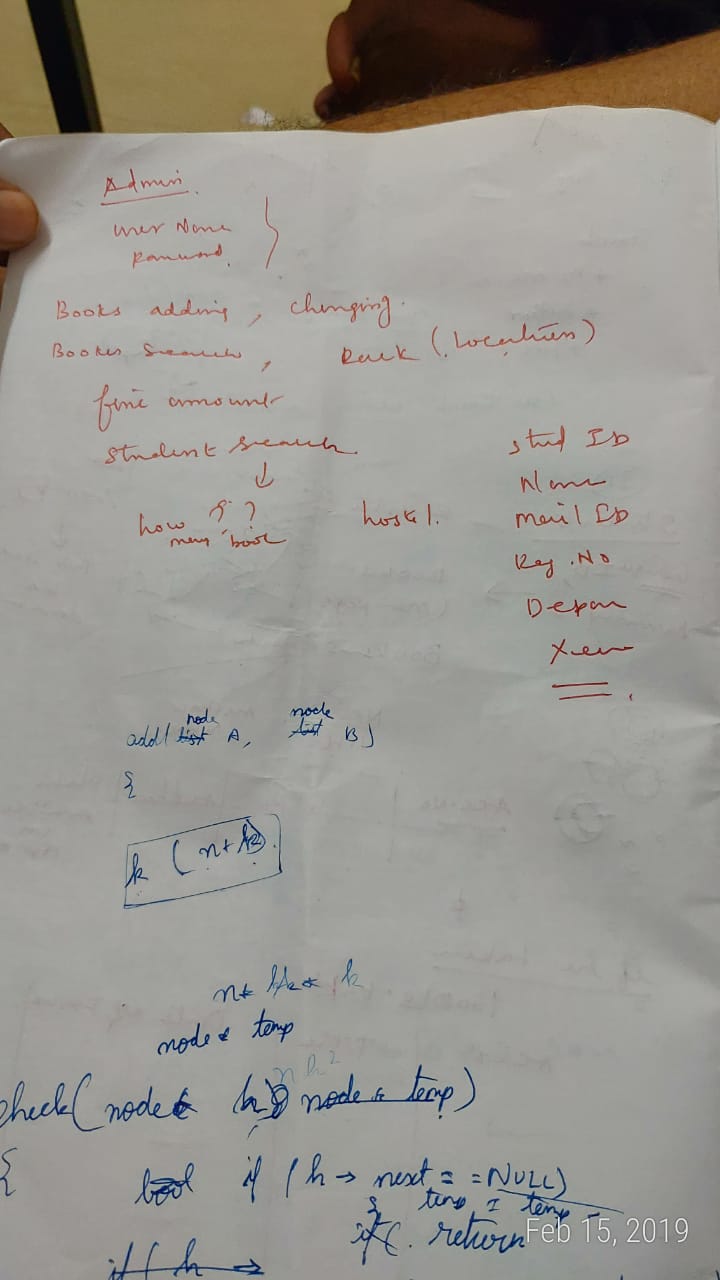 Admin.
User Name
Password.
Books adding, changing.
Books Search, Rack (Location)
fine amount
Student search.
how many book ??
hostel.
Stud ID
Name
Mail ID
Reg. No
Depar
Year
add( node A, node B)
{
k (n+k)
node * temp
check( node * h) node * temp)
{
bool if (h → next = = NULL)
temp = temp
if (. return
if ( h →
Feb 15, 2019